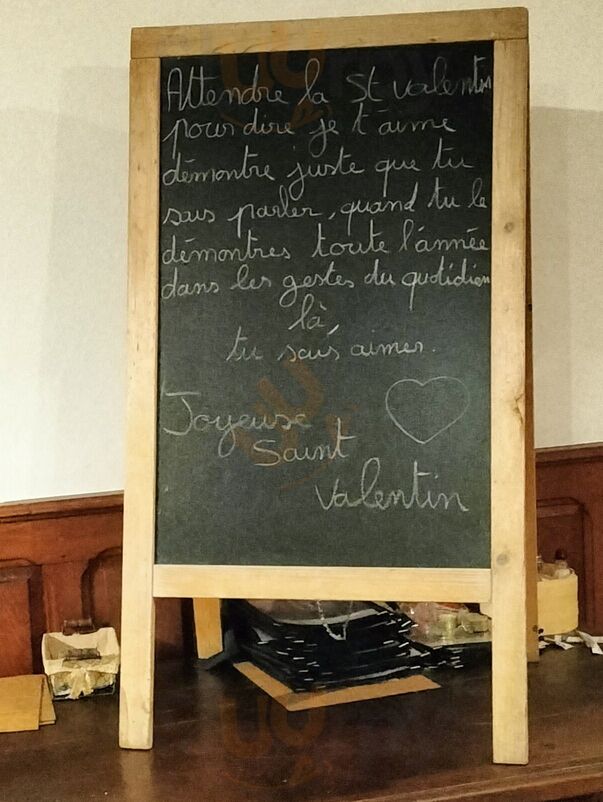 Attendre la St Valentin
pour dire je t'aime
démontre juste que tu
sais parler, quand tu le
démontres toute l'année
dans les gestes du quotidien
là,
tu sais aimer.
Joyeuse
Saint
Valentin